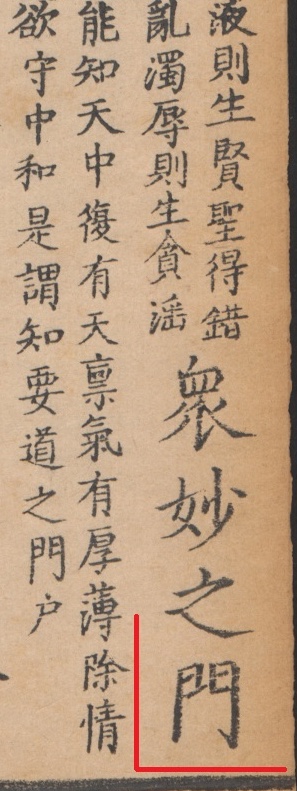 液則生賢聖得錯
亂濁辱則生貪滛
眾妙之門
能知天中復有天稟氣有厚薄除情
欲守中和是謂知要道之門户